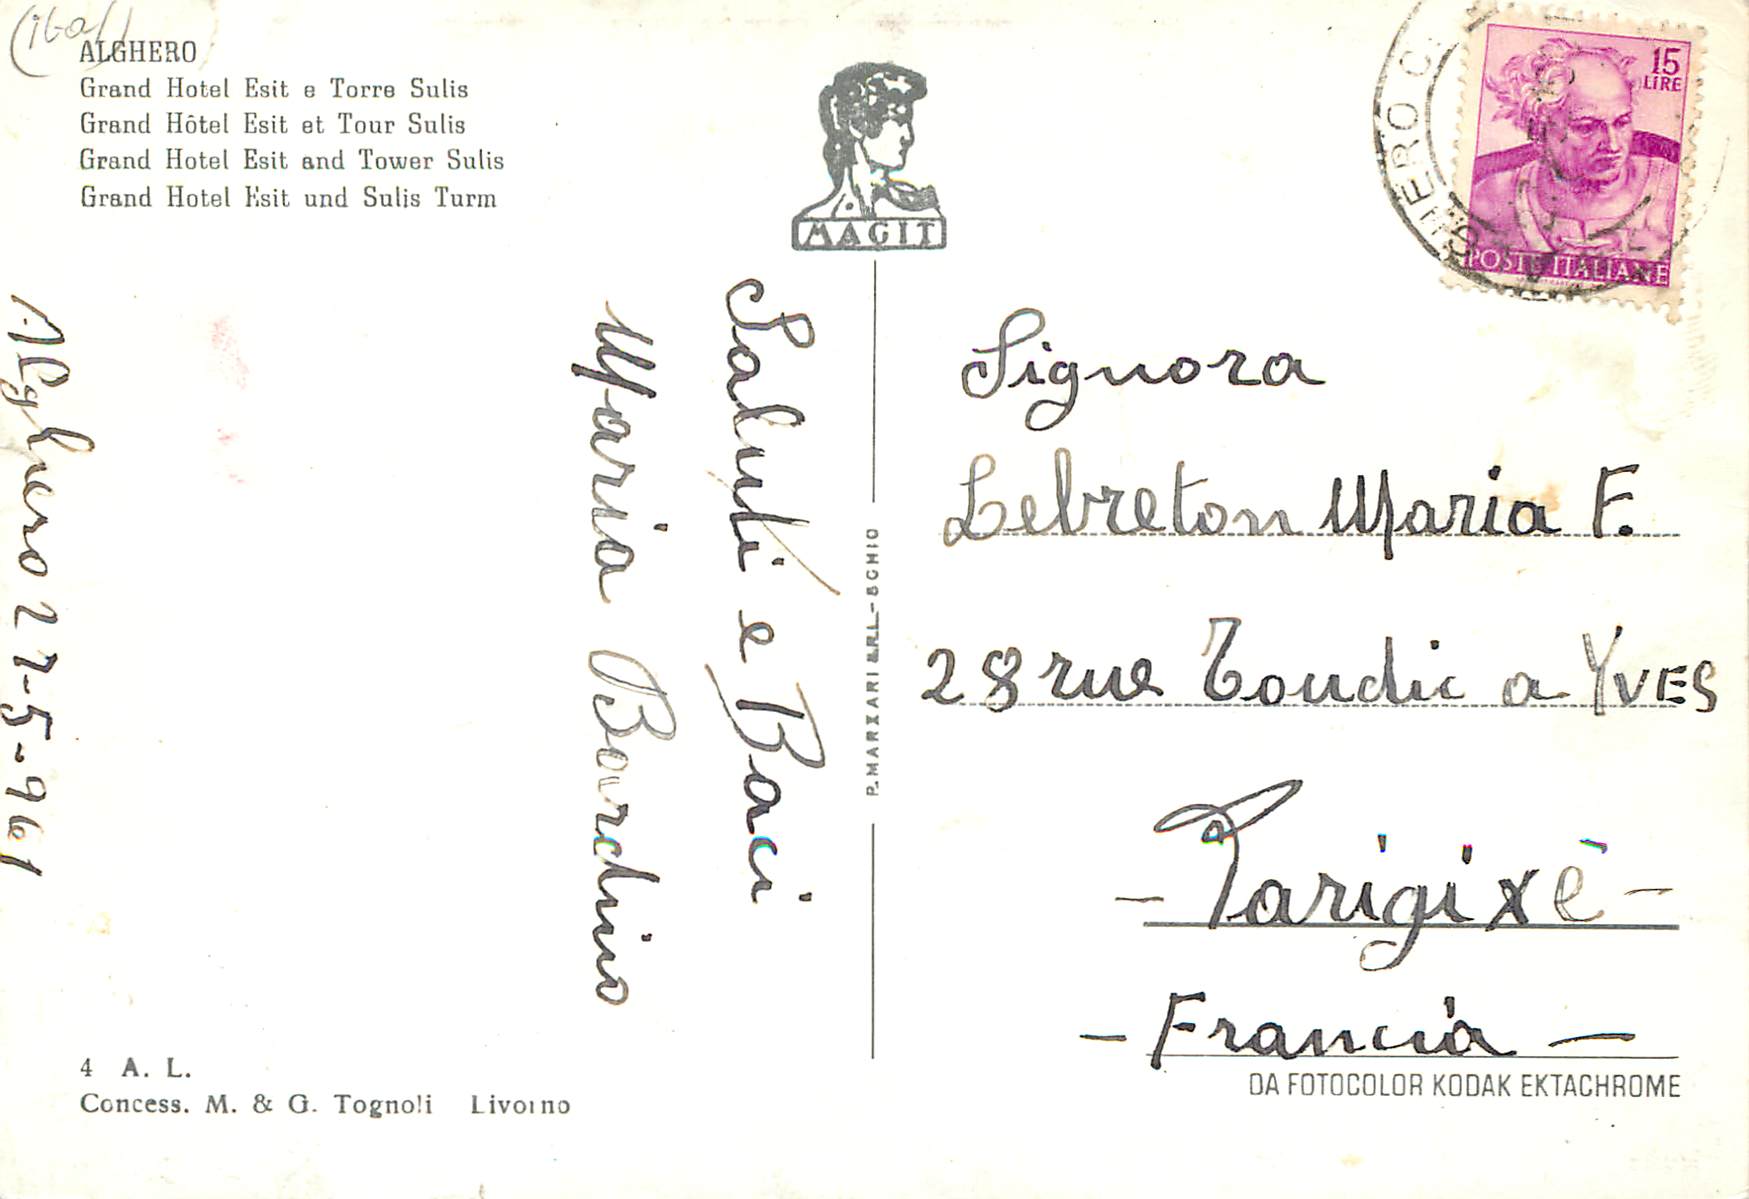 (ital)
ALGHERO
Grand Hotel Esit e Torre Sulis
Grand Hôtel Esit et Tour Sulis
Grand Hotel Esit and Tower Sulis
Grand Hotel Esit und Sulis Turm
MAGIT
15
LIRE
POSTE ITALIANE
GHERO C
Alghero 27-5-961
Saluti e Baci
Maria Bardino
P. MARZARI S.R.L. - SCHIO
Signora
Lebreton Maria F.
28 rue Toudic a YVES
- Parigi Xè -
- Francia -
DA FOTOCOLOR KODAK EKTACHROME
4 A. L.
Concess. M. & G. Tognoli Livorno